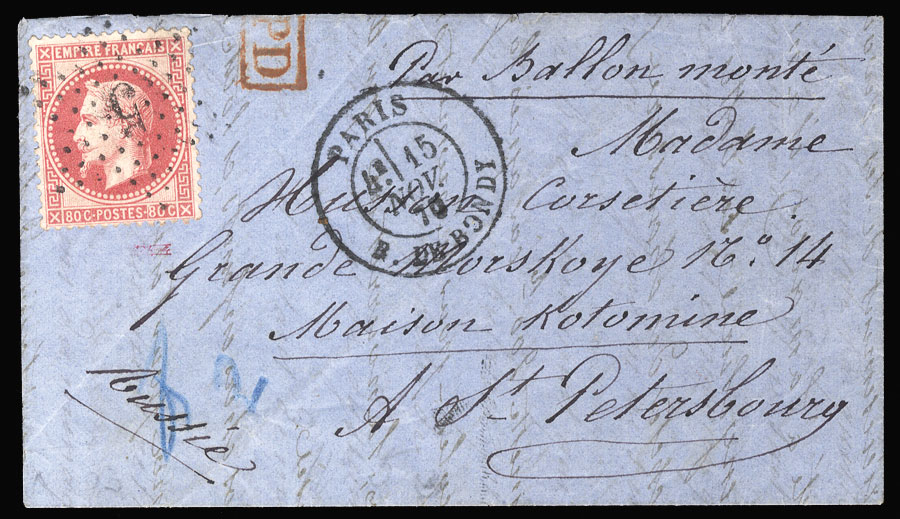 EMPIRE FRANÇAIS
5
80 C - POSTES - 80 C
PD
PARIS
15
NOV.
70
R. DE BONDY
Par Ballon monté
Madame
Corsetière
Grande Morskoye No. 14
Maison Kotomine
A St Petersbourg
Russie
2